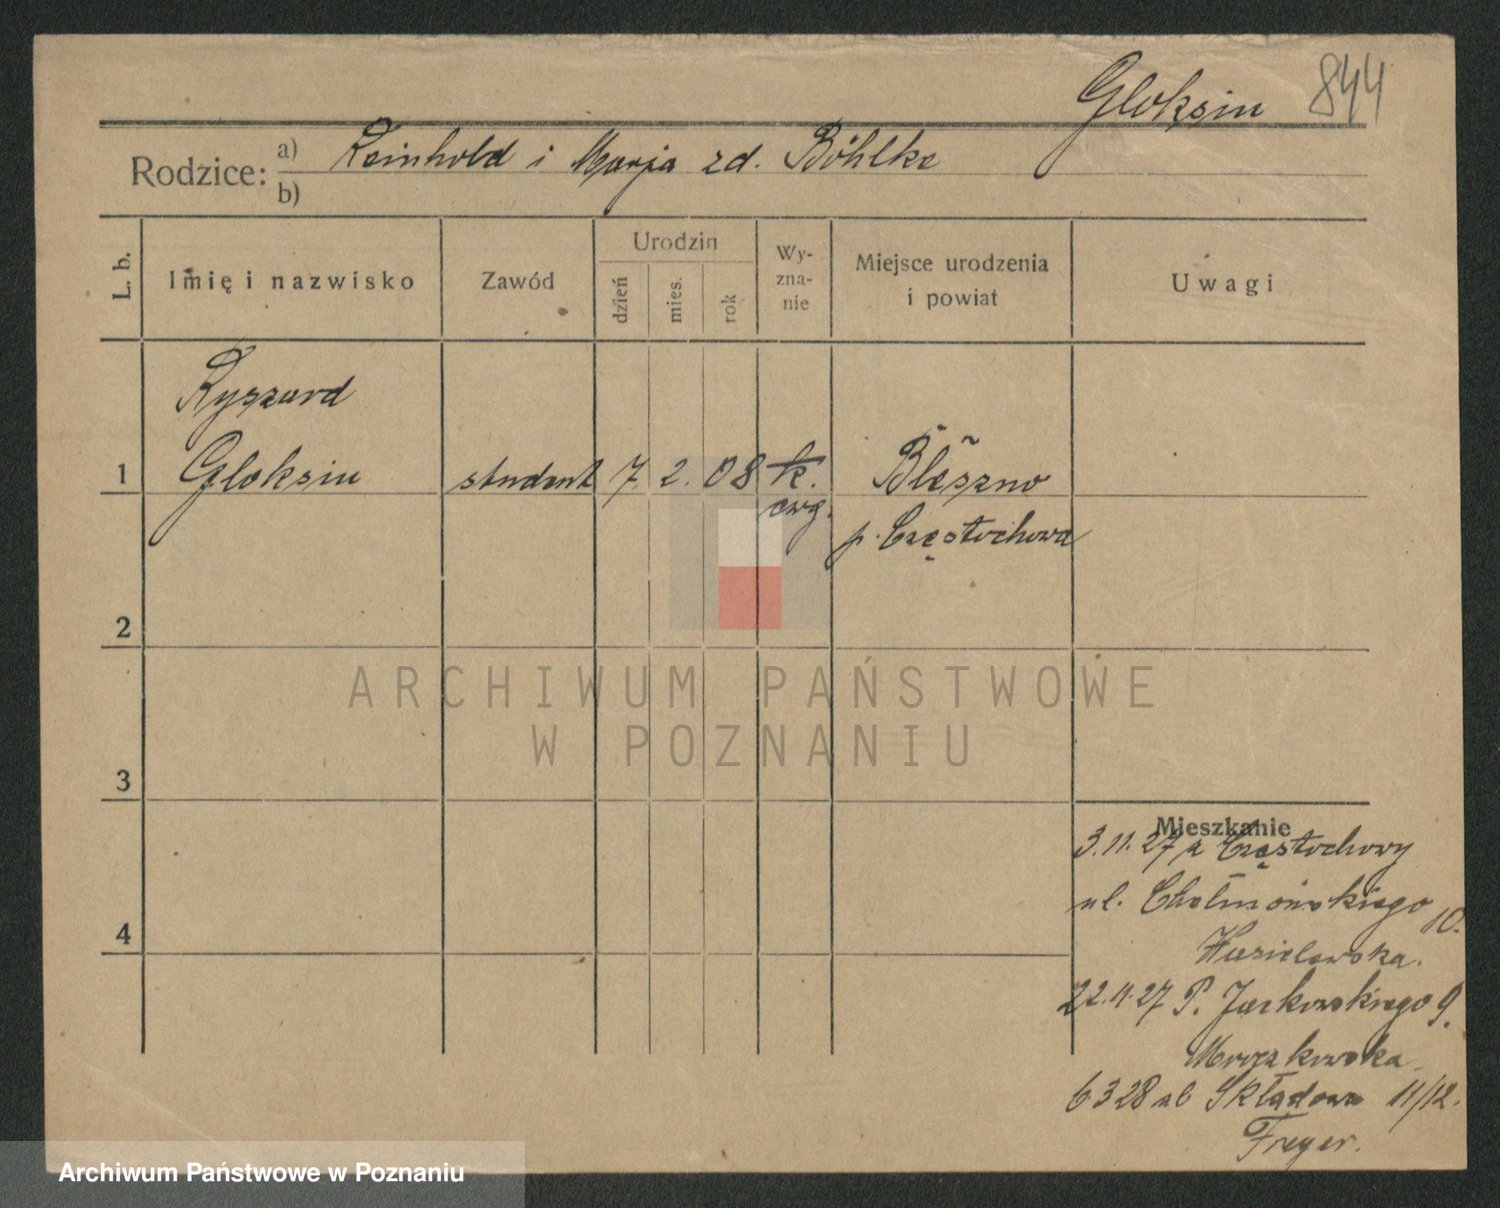 Gloksin 844
Rodzice: a) Reinhold i Marja zd. Böhlke
b)
L. b. Imię i nazwisko Zawód Urodzin dzień mies. rok Wy-zna-nie Miejsce urodzenia i powiat Uwagi
Ryszard
1 Gloksin student 7. 2. 08 k. Bleszno
ewg. p. Częstochowa
2
ARCHIWUM PAŃSTWOWE
W POZNANIU
3
Mieszkanie
3.11.27 z Częstochowy
ul. Chełmońskiego 10.
4
22.11.27 P. Jackowskiego 9.
6 3 28 ul Składowa 11/12.
Freyer.
Archiwum Państwowe w Poznaniu